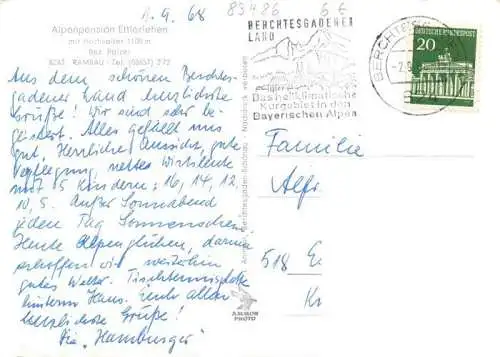 1.9.68
83486
6 €
Alpenpension Ettlerlehen
mit Hochkalter 1100 m
Bes. Palzer
8243 RAMSAU - Tel. (08657) 272
Aus dem schönen Berchtes-
gadener Land herzlichste
Grüße! Wir sind sehr be-
geistert. Alles gefällt uns
gut, Herrliche Aussicht, gute
Verpflegung, nettes Wirtsleute
mit 5 Kindern: 16, 14, 12,
10, 5. Außer Sonnabend
jeden Tag Sonnenschein.
Heute Alpenglühen, darum
erhoffen wir weiterhin
gutes Wetter. Tischtennisplatte
hinterm Haus. Euch allen
herzlichste Grüße!
Die „Hamburger"
BERCHTESGADENER
LAND
Das heilklimatische
Kurgebiet in den
Bayerischen Alpen
BERCHTESG
DEUTSCHE BUNDESPOST
20
Familie
Alfr
518 E
K
Berchtesgaden-Schönau · Nachdruck verboten
AMMON
PHOTO